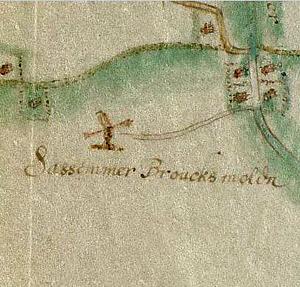 Sassemmer Broucks molen